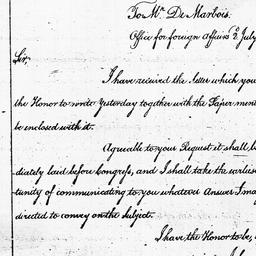 To Mr. De Marbois.
Office for foreign Affairs 2d July
Sir,
I have received the letter which you
the Honor to write yesterday together with the Paper men
be enclosed with it.
Agreable to your Request it shall be
diately laid before Congress, and I shall take the earlies
tunity of communicating to you whatever Answer I may
directed to convey on the subject.
I have the Honor to be,